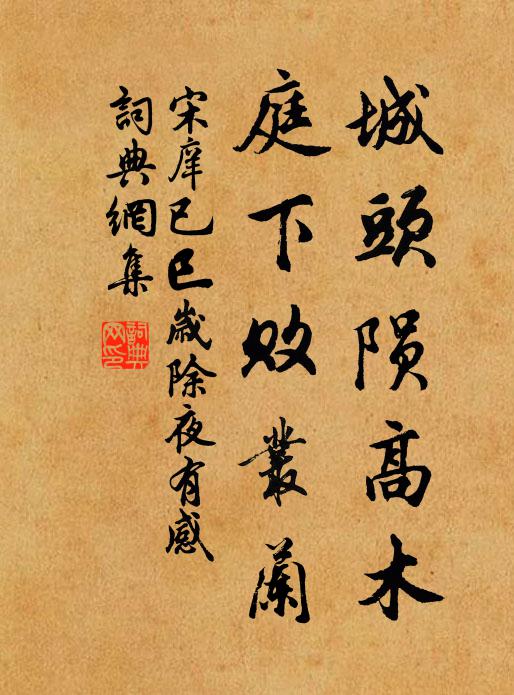 城頭陨高木
庭下败叢蘭
宋庠己巳歲除夜有感
詞典網集
詞典网印